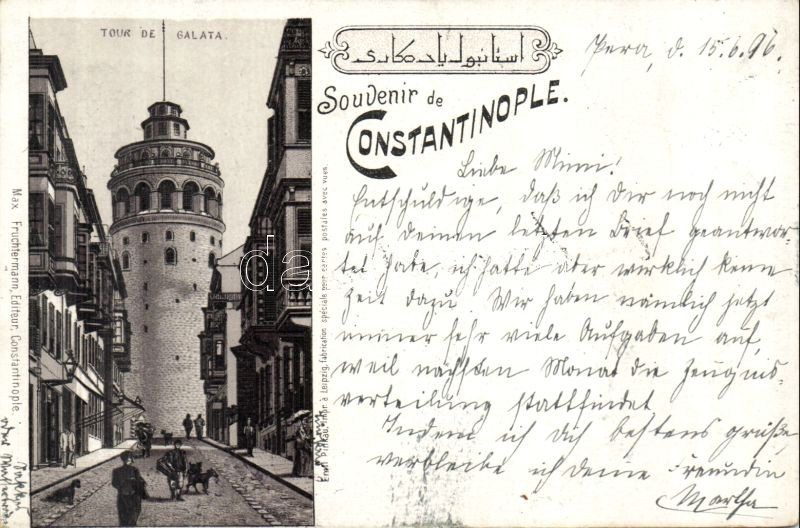 TOUR DE GALATA.
استانبول يادكارى
Souvenir de
CONSTANTINOPLE.
Pera, d. 15.6.96.
Liebe Mimi!
Entschuldige, daß ich Dir noch nicht
auf deinen letzten Brief geantwor-
tet habe, ich hatte aber wirklich keine
Zeit dazu. Wir haben nämlich jetzt
immer sehr viele Aufgaben auf,
weil nächsten Monat die Zeugnis-
verteilung stattfindet.
Indem ich dich bestens grüße,
verbleibe ich deine Freundin
Martha
Max Fruchtermann, Editeur, Constantinople.
Ernst Pinkau, impr. à Leipzig, fabrication spéciale pour cartes postales avec vues.